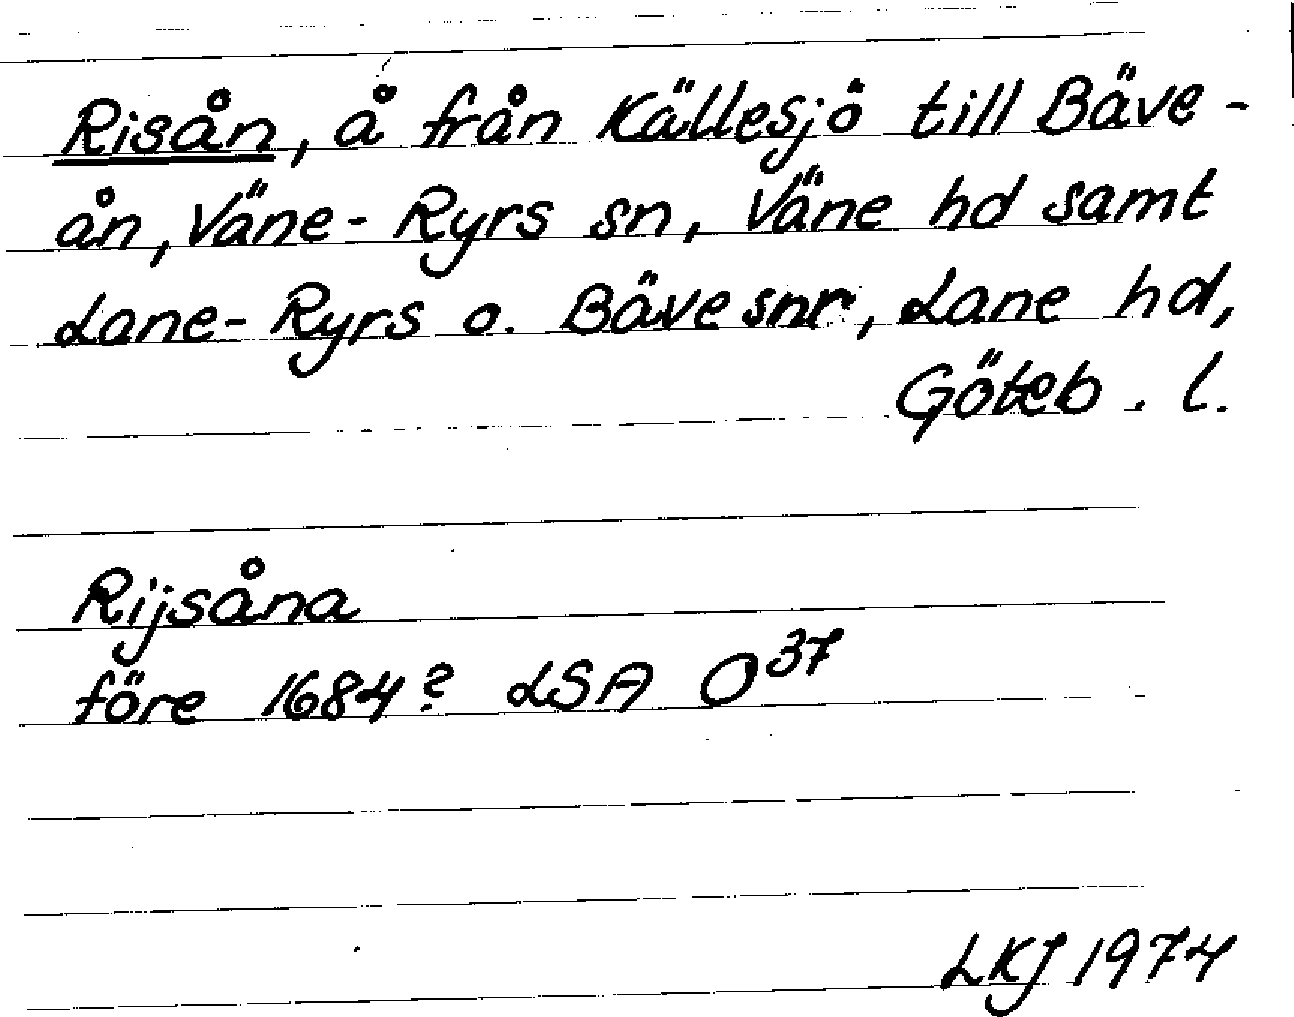 Risån, å från Källesjö till Bäve-
ån, Väne-Ryrs sn, Väne hd samt
Lane-Ryrs o. Bäve snr, Lane hd,
Göteb. l.
Rijsåna
före 1684? LSA O³⁷
LKJ 1974